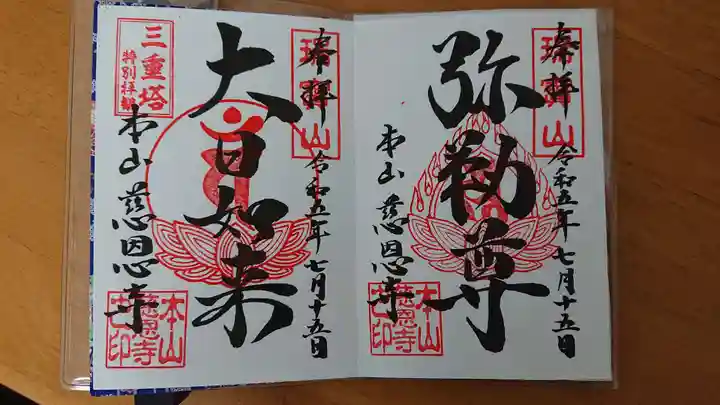 奉拝
瑞宝山
令和五年七月十五日
弥勒尊
本山 慈恩寺
本山
慈恩寺
奉拝
瑞宝山
令和五年七月十五日
大日如来
三重塔
特別拝観
本山 慈恩寺
本山
慈恩寺